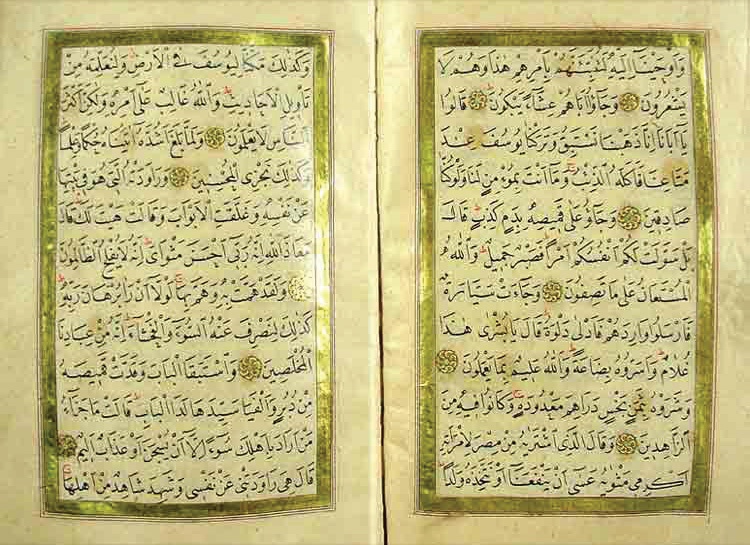 وَاَوْحَيْنَٓا اِلَيْهِ لَتُنَبِّئَنَّهُمْ بِاَمْرِهِمْ هٰذَا وَهُمْ لَا
يَشْعُرُونَ وَجَٓاؤُٓا اَبَاهُمْ عِشَٓاءً يَبْكُونَ قَالُوا
يَٓا اَبَانَٓا اِنَّا ذَهَبْنَا نَسْتَبِقُ وَتَرَكْنَا يُوسُفَ عِنْدَ
مَتَاعِنَا فَاَكَلَهُ الذِّئْبُ وَمَٓا اَنْتَ بِمُؤْمِنٍ لَنَا وَلَوْ كُنَّا
صَادِقِينَ وَجَٓاؤُ عَلٰى قَمِيصِهِ بِدَمٍ كَذِبٍ قَالَ
بَلْ سَوَّلَتْ لَكُمْ اَنْفُسُكُمْ اَمْرًا فَصَبْرٌ جَمِيلٌ وَاللّٰهُ
الْمُسْتَعَانُ عَلٰى مَا تَصِفُونَ وَجَٓاءَتْ سَيَّارَةٌ
فَاَرْسَلُوا وَارِدَهُمْ فَاَدْلٰى دَلْوَهُ قَالَ يَا بُشْرٰى هٰذَا
غُلَامٌ وَاَسَرُّوهُ بِضَاعَةً وَاللّٰهُ عَلِيمٌ بِمَا يَعْمَلُونَ
وَشَرَوْهُ بِثَمَنٍ بَخْسٍ دَرَاهِمَ مَعْدُودَةٍ وَكَانُوا فِيهِ مِنَ
الزَّاهِدِينَ وَقَالَ الَّذِى اشْتَرٰيهُ مِنْ مِصْرَ لِامْرَاَتِهِ
اَكْرِمِى مَثْوٰيهُ عَسٰٓى اَنْ يَنْفَعَنَٓا اَوْ نَتَّخِذَهُ وَلَدًا
وَكَذٰلِكَ مَكَّنَّا لِيُوسُفَ فِى الْاَرْضِ وَلِنُعَلِّمَهُ مِنْ
تَاْوِيلِ الْاَحَادِيثِ وَاللّٰهُ غَالِبٌ عَلٰٓى اَمْرِهِ وَلٰكِنَّ اَكْثَرَ
النَّاسِ لَا يَعْلَمُونَ وَلَمَّا بَلَغَ اَشُدَّهُ اٰتَيْنَاهُ حُكْمًا وَعِلْمًا
وَكَذٰلِكَ نَجْزِى الْمُحْسِنِينَ وَرَاوَدَتْهُ الَّتِى هُوَ فِى بَيْتِهَا
عَنْ نَفْسِهِ وَغَلَّقَتِ الْاَبْوَابَ وَقَالَتْ هَيْتَ لَكَ قَالَ
مَعَاذَ اللّٰهِ اِنَّهُ رَبِّٓى اَحْسَنَ مَثْوَاىَ اِنَّهُ لَا يُفْلِحُ الظَّالِمُونَ
وَلَقَدْ هَمَّتْ بِهِ وَهَمَّ بِهَا لَوْلَٓا اَنْ رَاٰ بُرْهَانَ رَبِّهِ
كَذٰلِكَ لِنَصْرِفَ عَنْهُ السُّٓوءَ وَالْفَحْشَٓاءَ اِنَّهُ مِنْ عِبَادِنَا
الْمُخْلَصِينَ وَاسْتَبَقَا الْبَابَ وَقَدَّتْ قَمِيصَهُ
مِنْ دُبُرٍ وَاَلْفَيَا سَيِّدَهَا لَدَا الْبَابِ قَالَتْ مَا جَزَٓاءُ
مَنْ اَرَادَ بِاَهْلِكَ سُٓوءًا اِلَّٓا اَنْ يُسْجَنَ اَوْ عَذَابٌ اَلِيمٌ
قَالَ هِىَ رَاوَدَتْنِى عَنْ نَفْسِى وَشَهِدَ شَاهِدٌ مِنْ اَهْلِهَا